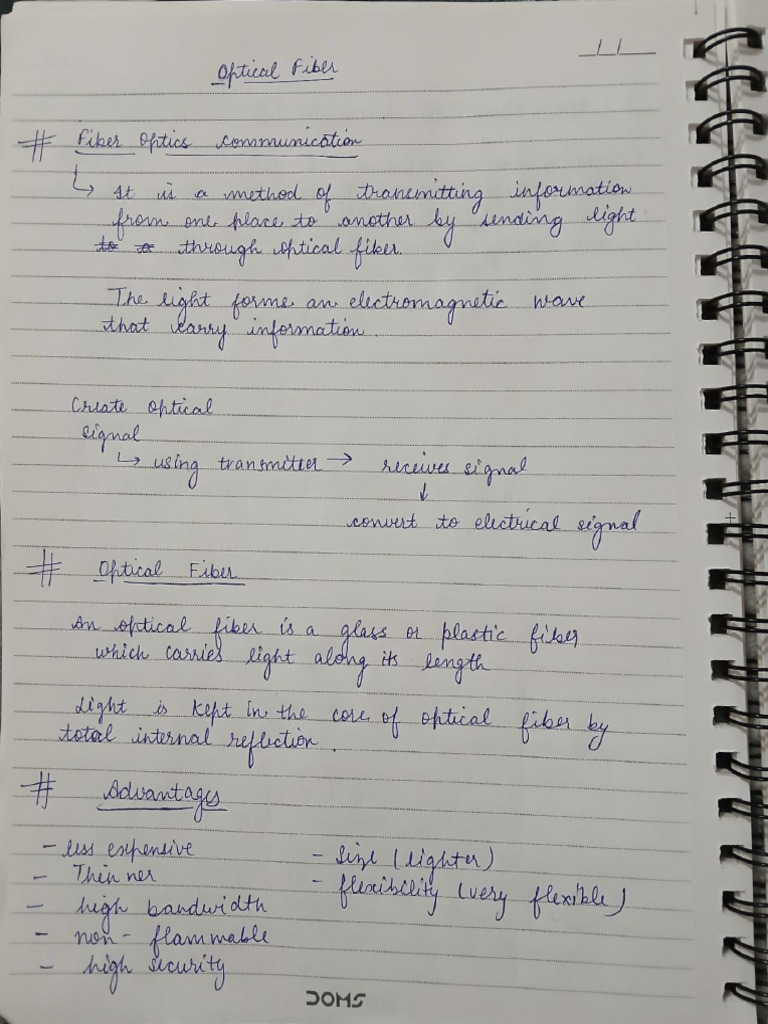 Optical Fiber
# Fiber Optics communication
↳ It is a method of transmitting information
from one place to another by sending light
through optical fiber.
The light forms an electromagnetic wave
that carry information.
Create optical
signal
↳ using transmitter → receives signal
↓
convert to electrical signal
# Optical Fiber
An optical fiber is a glass or plastic fiber
which carries light along its length
Light is kept in the core of optical fiber by
total internal reflection.
# Advantages
- less expensive
- Size (lighter)
- Thinner
- flexibility (very flexible)
- high bandwidth
- non-flammable
- high security
DOMS